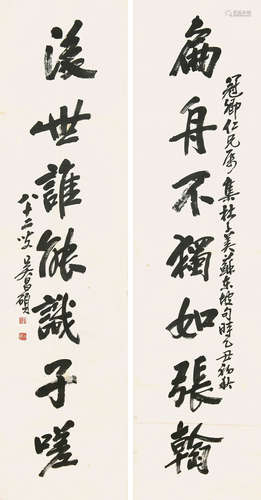 扁舟不獨如張翰
冠卿仁兄屬集杜子美蘇東坡句時乙丑初秋
後世誰能識子嗟
八十二叟吳昌碩